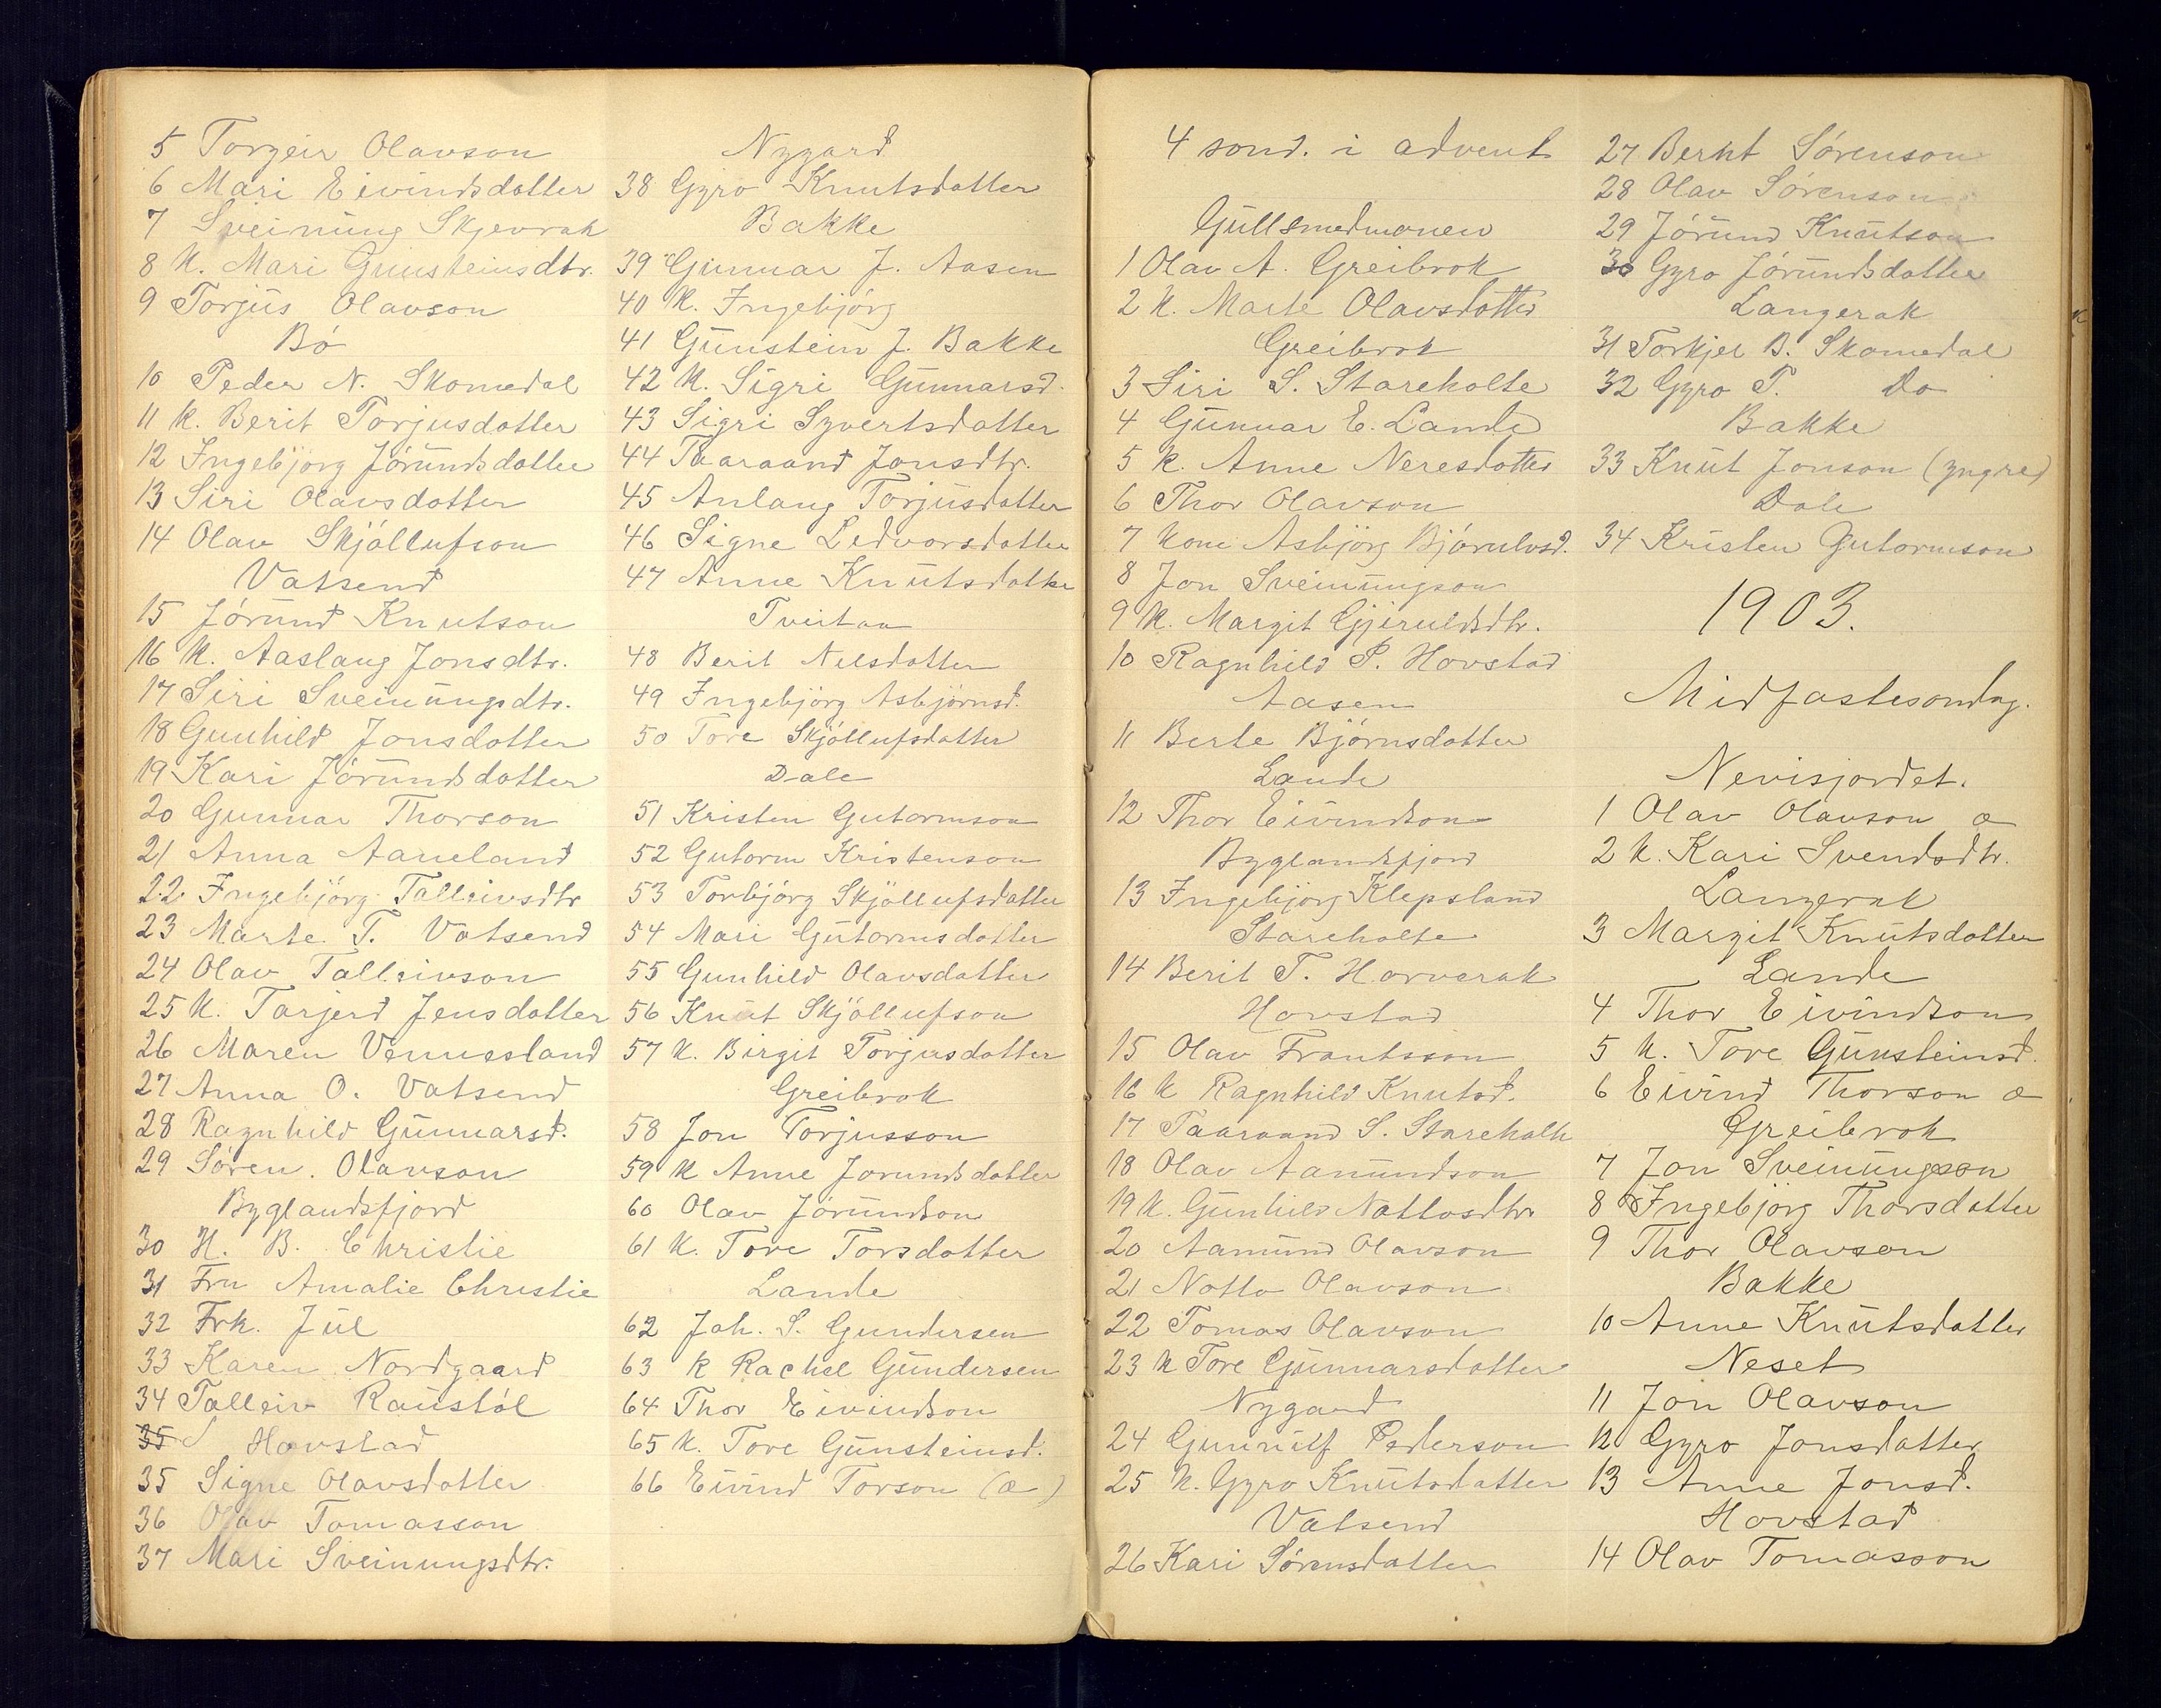 5 Torgeir Olavson
6 Mari Eivindsdotter
7 Sveinung Skjevrak
8 K. Mari Gunsteinsdtr.
9 Torjus Olavson
Bö
10 Peder N. Skomedal
11 K. Berit Torjusdotter
12 Ingebjörg Jörundsdotter
13 Siri Olavsdotter
14 Olav Skjöllufson
Vatsend
15 Jörund Knutson
16 K. Aaslaug Jonsdtr.
17 Siri Sveinungsdtr.
18 Gunhild Jonsdotter
19 Kari Jörundsdotter
20 Gunnar Thorson
21 Anna Aaneland
22 Ingebjörg Talleivsdtr
23 Marte T. Vatsend
24 Olav Talleivson
25 K. Tarjerd Jensdotter
26 Maren Vennesland
27 Anna O. Vatsend
28 Ragnhild Gunnarsd.
29 Sören. Olavson
Byglandsfjord
30 H. B. Christie
31 Fru Amalie Christie
32 Frk. Jul
33 Karen Nordgaard
34 Talleiv Raustöl
35 Hovstad
35 Signe Olavsdotter
36 Olav Tomasson
37 Mari Sveinungsdtr.
Nygard
38 Gyro Knutsdotter
Bakke
39 Gunnar J. Aasen
40 K. Ingebjörg
41 Gunstein J. Bakke
42 K. Sigri Gunnarsd.
43 Sigri Syvertsdotter
44 Taaraand Jonsdtr.
45 Anlaug Torjusdotter
46 Signe Ledvorsdotter
47 Anne Knutsdotter
Tveitaa
48 Berit Nelsdotter
49 Ingebjörg Asbjörnsd.
50 Tore Skjöllufsdatter
Dale
51 Kristen Gutormson
52 Gutorm Kristenson
53 Torbjörg Skjöllufsdatter
54 Mari Gutormsdotter
55 Gunhild Olavsdatter
56 Knut Skjöllufson
57 K. Birgit Torjusdotter
Greibrok
58 Jon Torjusson
59 K Anne Jorundsdotter
60 Olav Jörundson
61 K. Tore Torsdotter
Lande
62 Joh. S. Gundersen
63 K Rachel Gundersen
64 Thor Eivindson
65 K. Tore Gunsteinsd.
66 Eivind Torson (æ)
4 sond. i advent
Gullsmedmonen
1 Olav A. Greibrok
2 K. Marte Olavsdotter
Greibrok
3 Siri S. Stareholte
4 Gunnar E. Lande
5 K. Anne Neresdotter
6 Thor Olavson
7 Kone Asbjörg Björnlvsd.
8 Jon Sveinungson
9 K. Margit Gjeruldsdtr.
10 Ragnhild P. Hovstad
Aasen
11 Berte Björnsdotter
Lande
12 Thor Eivindson
Byglandsfjord
13 Ingebjörg Klepsland
Stareholte
14 Berit T. Horverak
Hovstad
15 Olav Frantsson
16 K Ragnhild Knutsd.
17 Taaraand S. Stareholt
18 Olav Aamundson
19 K. Gunhild Nottosdtr
20 Aamund Olavson
21 Notto Olavson
22 Tomas Olavson
23 K Tore Gunnarsdotter
Nygard
24 Gunnulf Pederson
25 K. Gyro Knutsdotter
Vatsend
26 Kari Sörensdatter
27 Bernt Sörenson
28 Olav Sörenson
29 Jörund Knutson
30 Gyro Jörundsdotter
Langerak
31 Torkjel B. Skomedal
32 Gyro T. Do
Bakke
33 Knut Jonson (yngre)
Dale
34 Kristen Gutormson
1903.
Midfastesondag.
Nevisjordet.
1 Olav Olavson æ
2 K. Kari Svendsdtr.
Langerak
3 Margit Knutsdotter
Lande
4 Thor Eivindson
5 K. Tore Gunsteinsd.
6 Eivind Thorson æ
Greibrok
7 Jon Sveinungson
8 Ingebjörg Thorsdotter
9 Thor Olavson
Bakke
10 Anne Knutsdatter
Neset
11 Jon Olavson
12 Gyro Jonsdatter
13 Anne Jonsd.
Hovstad
14 Olav Tomasson